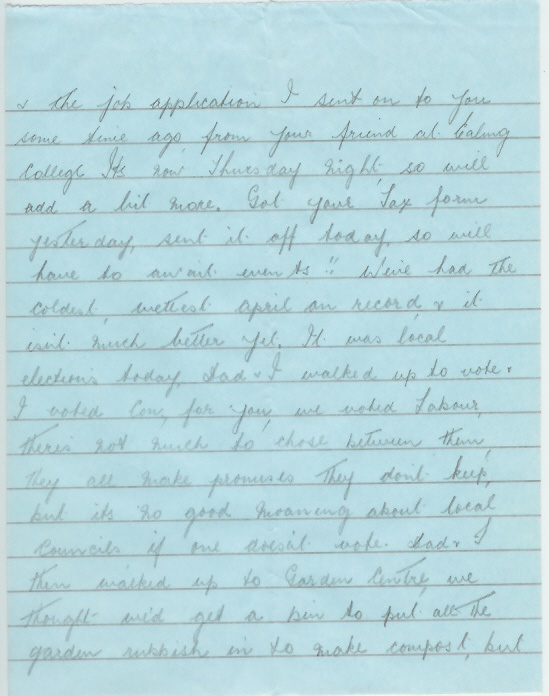 & the job application I sent on to you
some time ago, from your friend at Ealing
College. Its now Thursday night, so will
add a bit more. Got your Tax form
yesterday, sent it off today, so will
have to await events!! We've had the
coldest, wettest april on record, & it
isn't much better yet. It was local
elections today, Dad & I walked up to vote &
I voted Con, for you, we voted Labour,
theres not much to chose between them,
they all make promises they dont keep,
but its no good moaning about local
Councils if one doesn't vote. Dad & I
then walked up to Garden Centre, we
thought we'd get a bin to put all the
garden rubbish in to make compost, but